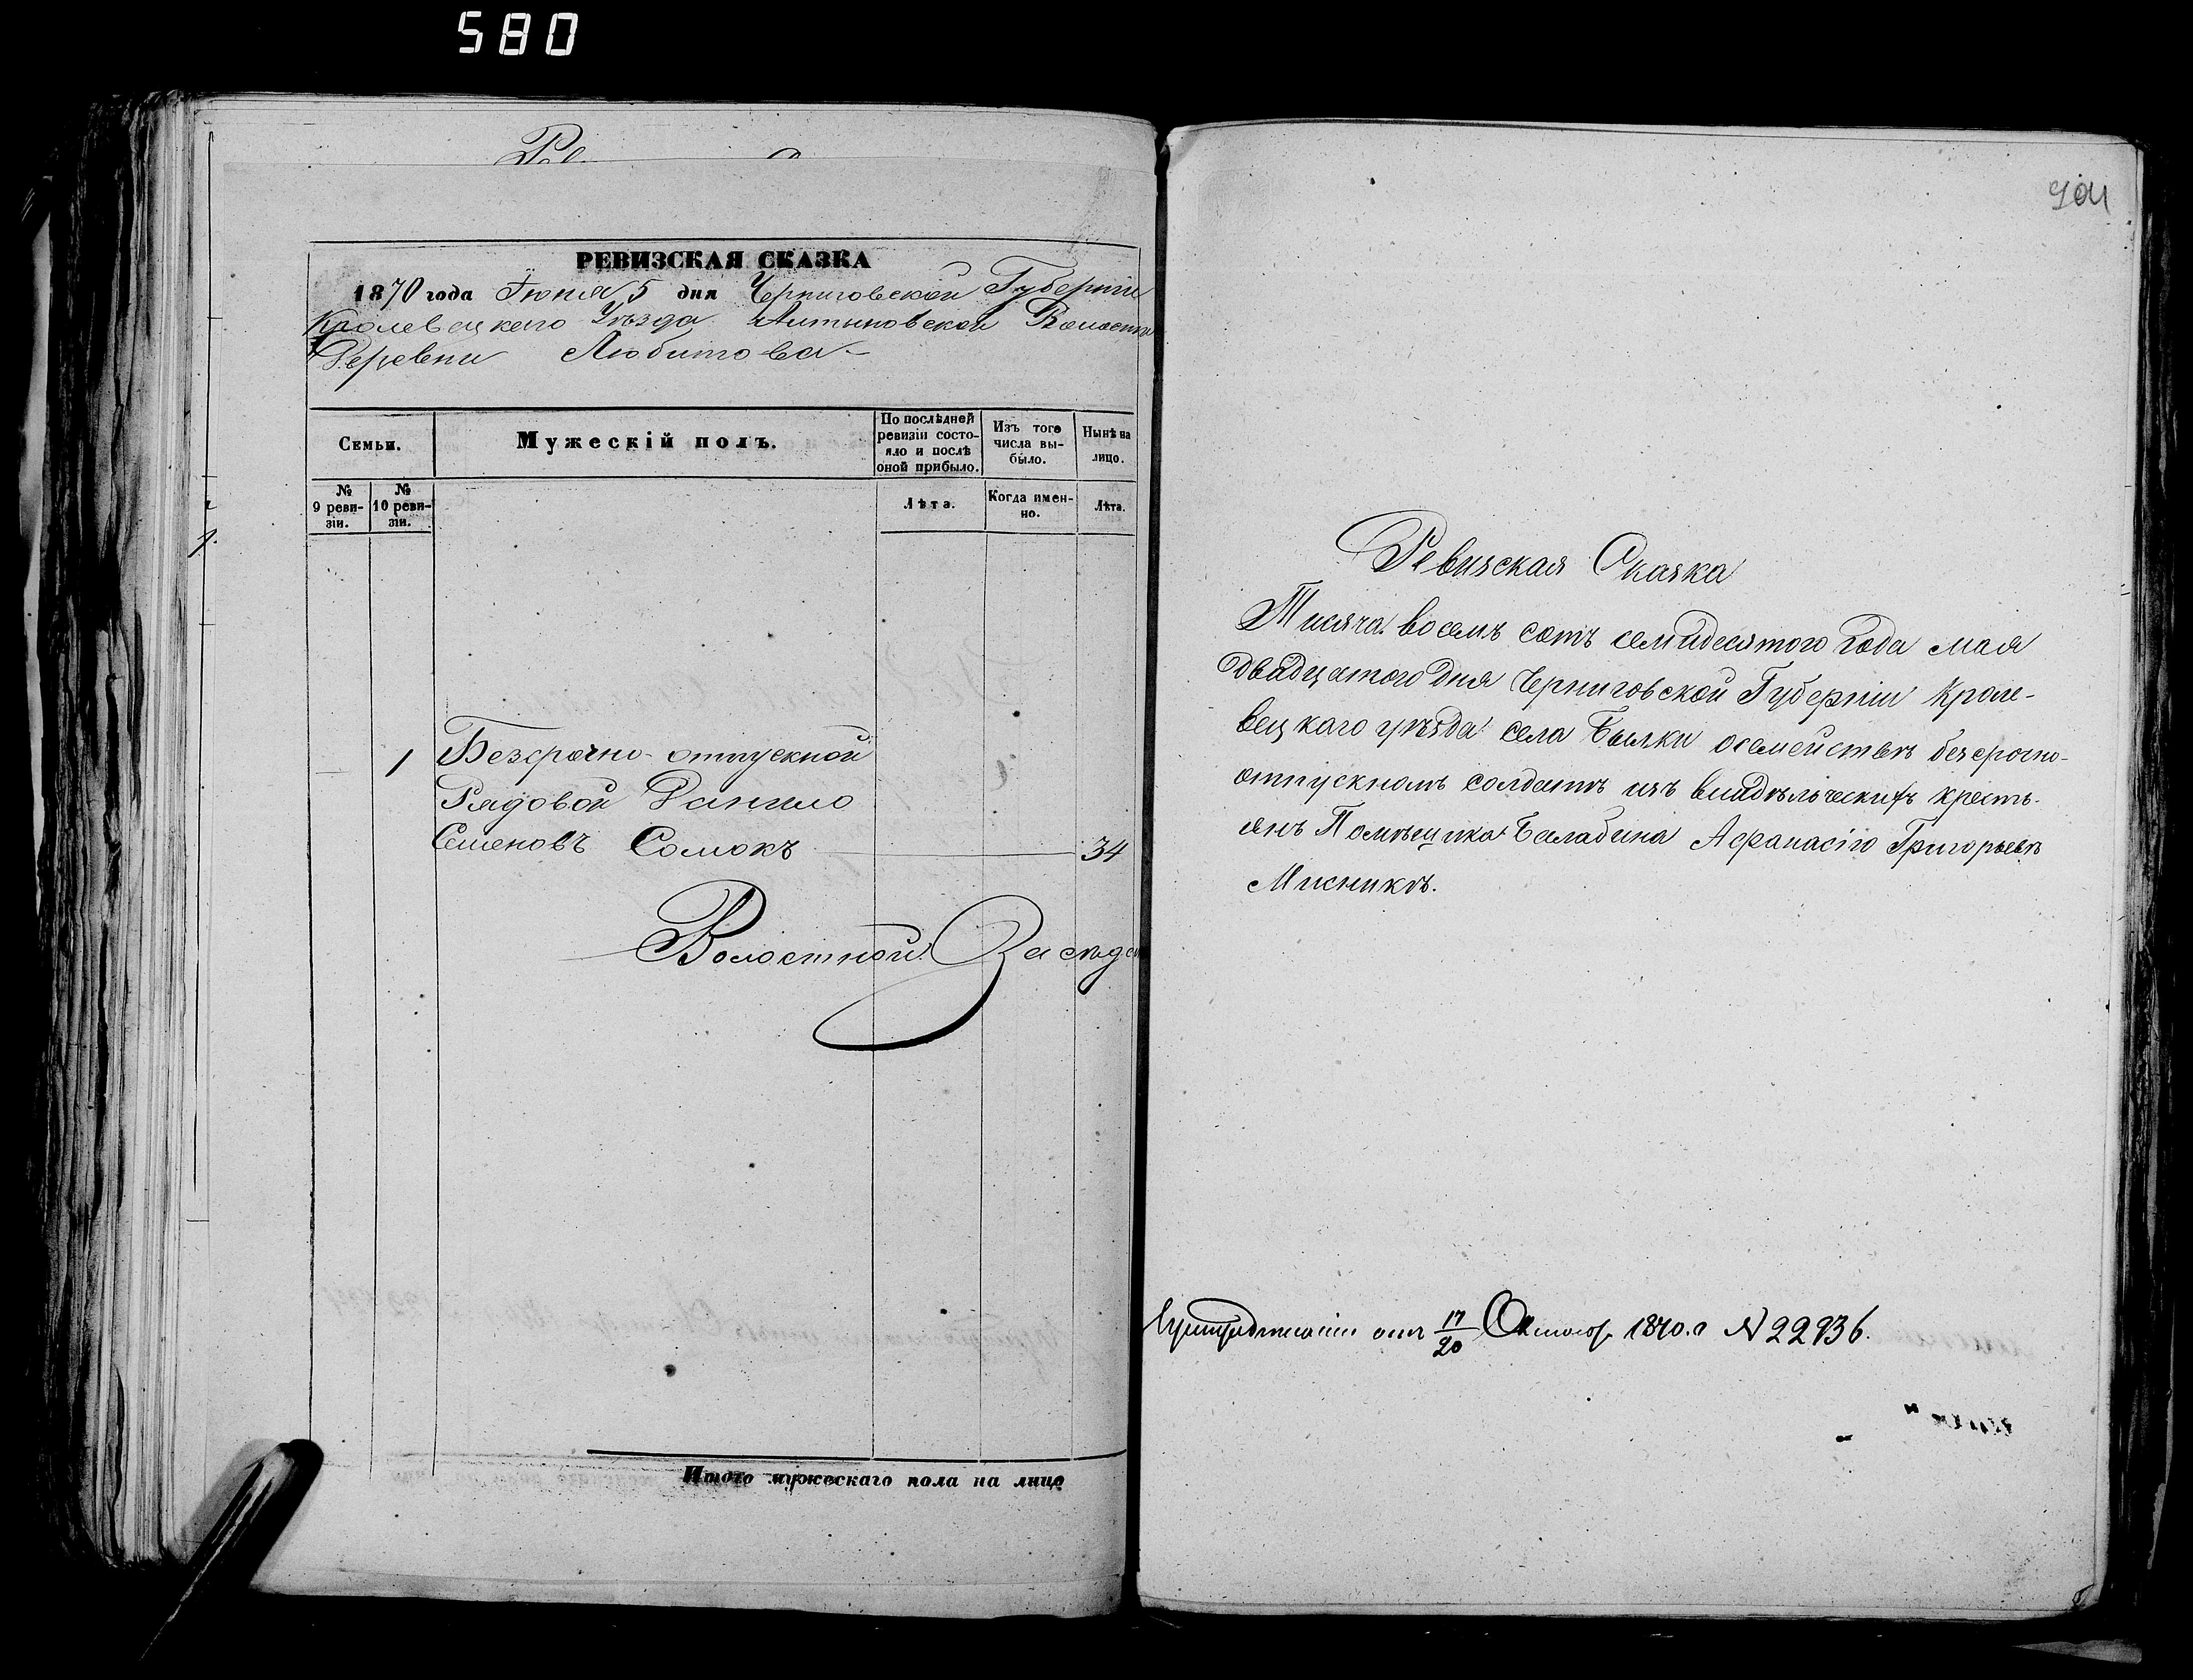 580
РЕВИЗСКАЯ СКАЗКА
1870 года Іюня 5 дня Черниговской Губерніи
Кролевецкаго Уѣзда Алтыновской Волости
Деревни Любитова
Семьи.
Мужескій полъ.
По послѣдней
ревизіи состо-
яло и послѣ
оной прибыло.
Изъ того
числа вы-
было.
Нынѣ на
лицо.
№
9 реви-
зіи.
№
10 реви-
зіи.
Лѣта.
Когда имен-
но.
Лѣта.
1 Безсрочно-отпускной
Рядовой Данило
Семеновъ Сомокъ 34
Волостной Засѣда
Итого мужескаго пола на лицо
904
Ревизская Сказка
Тисяча восемъ сотъ семидесятого года мая
двадцатого дня Черниговской Губерніи Кроле-
вецкаго уѣзда села Былки осемействѣ безсрочно-
отпускномъ солдатѣ изъ владѣльческихъ кресть-
янъ Помѣщика Балабина Афанасію Григорьевѣ
Мисникѣ.
отъ 17/20 Октябр 1870.г № 22936.